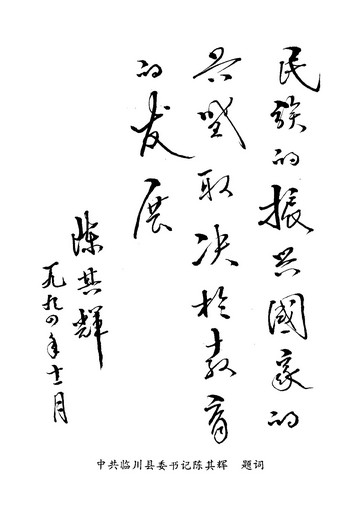 民族的振兴國家的
兴盛取决於教育
的发展
陈其輝
一九九四年十二月
中共临川县委书记陈其辉 题词